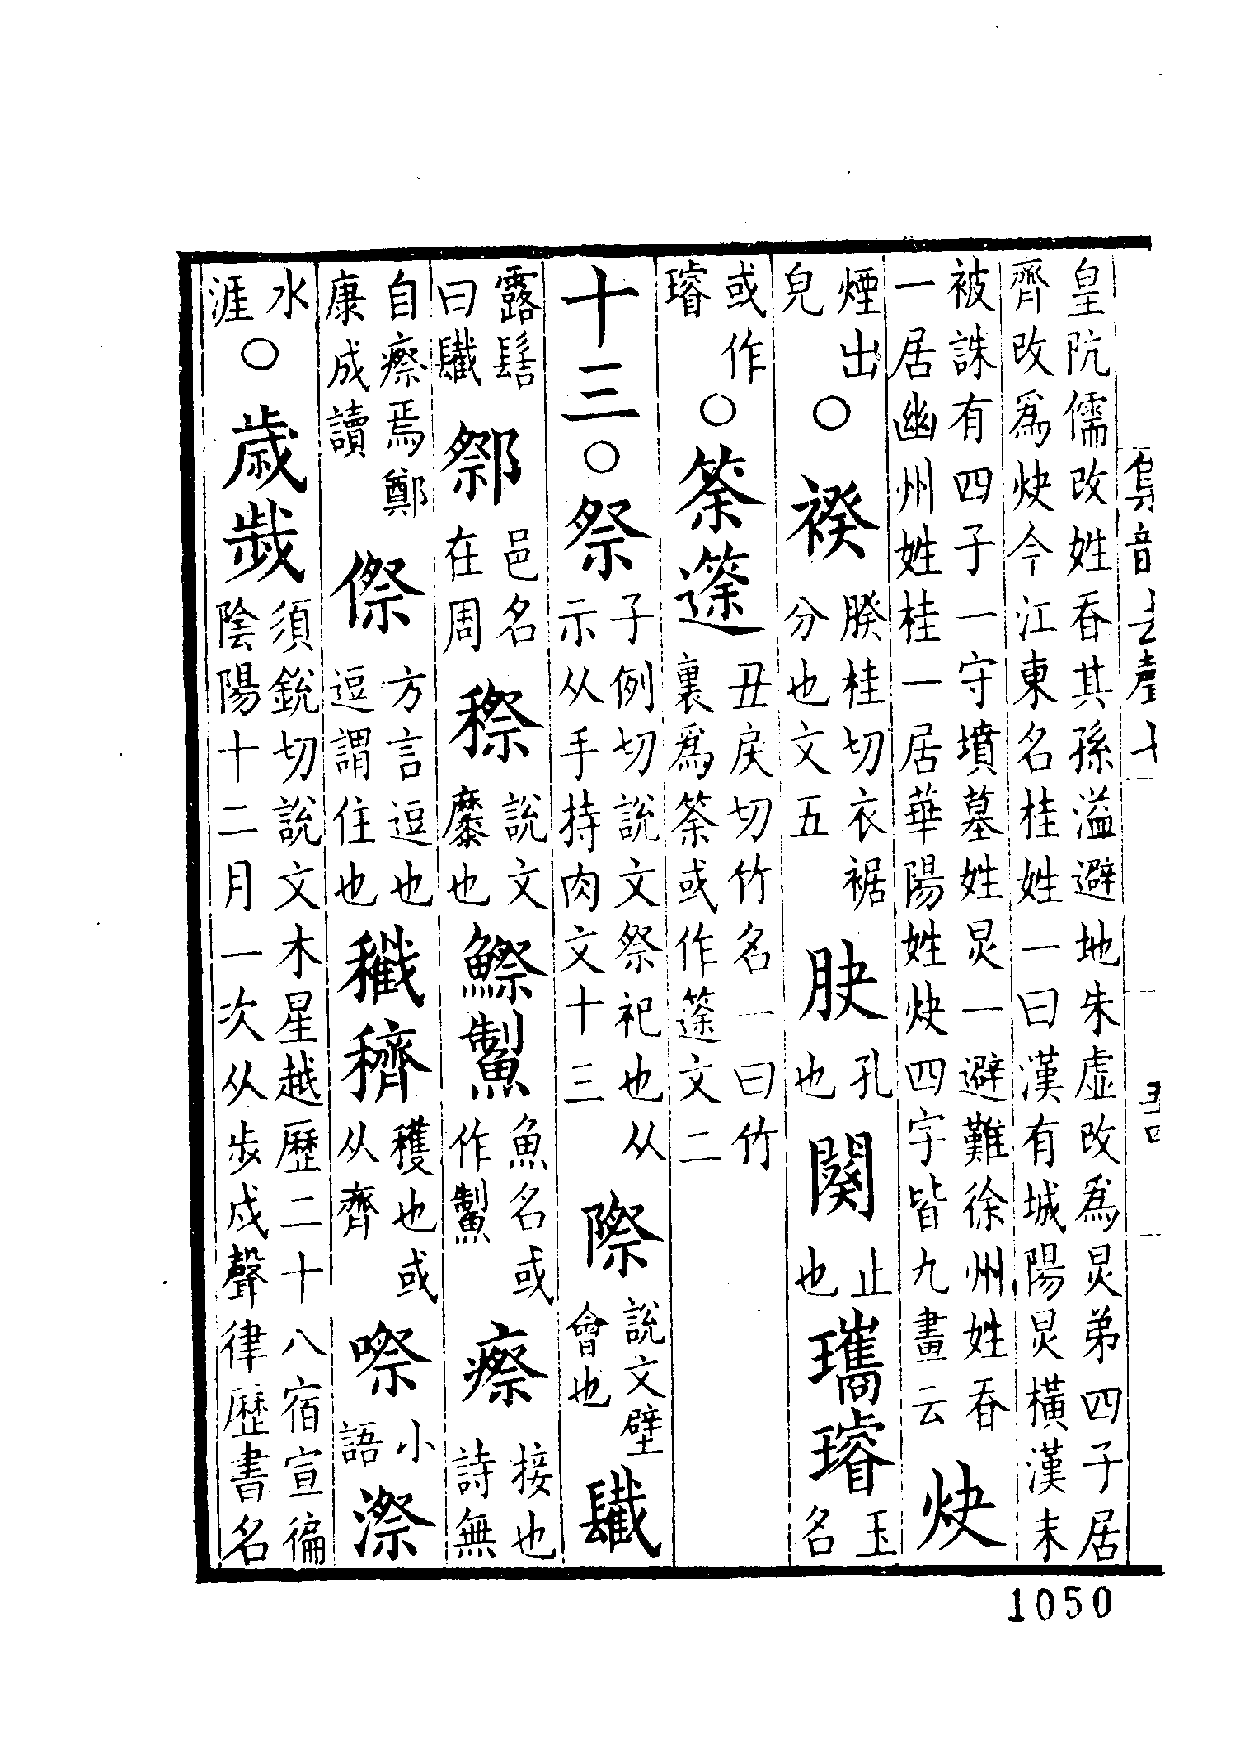 集韻去聲七
皇阬儒改姓吞其孫溢避地朱虛改爲炅弟四子居
齊改爲炔今江東名桂姓一曰漢有城陽炅橫漢末
被誅有四子一守墳墓姓炅一避難徐州姓吞
一居幽州姓桂一居華陽姓炔四字皆九畫云
炔
煙出
皃
○䙆
睽桂切衣裾
分也文五
䏐
孔
也
闋
止
也
瓗璿
玉
名
或作
璿
○筡
丑戾切竹名一曰竹
裏爲筡或作文二
十三○祭
子例切說文祭祀也从
示从手持肉文十三
際
說文壁
會也
露髻
曰
邑名
在周
穄
說文
䵚也
鰶
魚名或
作
瘵
接也
詩無
自瘵焉鄭
康成讀
傺
方言逗也
逗謂住也
穧
穫也或
从齊
㗫
小
語
漈
水
涯
○歲
須銳切說文木星越歷二十八宿宣徧
陰陽十二月一次从步戌聲律歷書名
1050